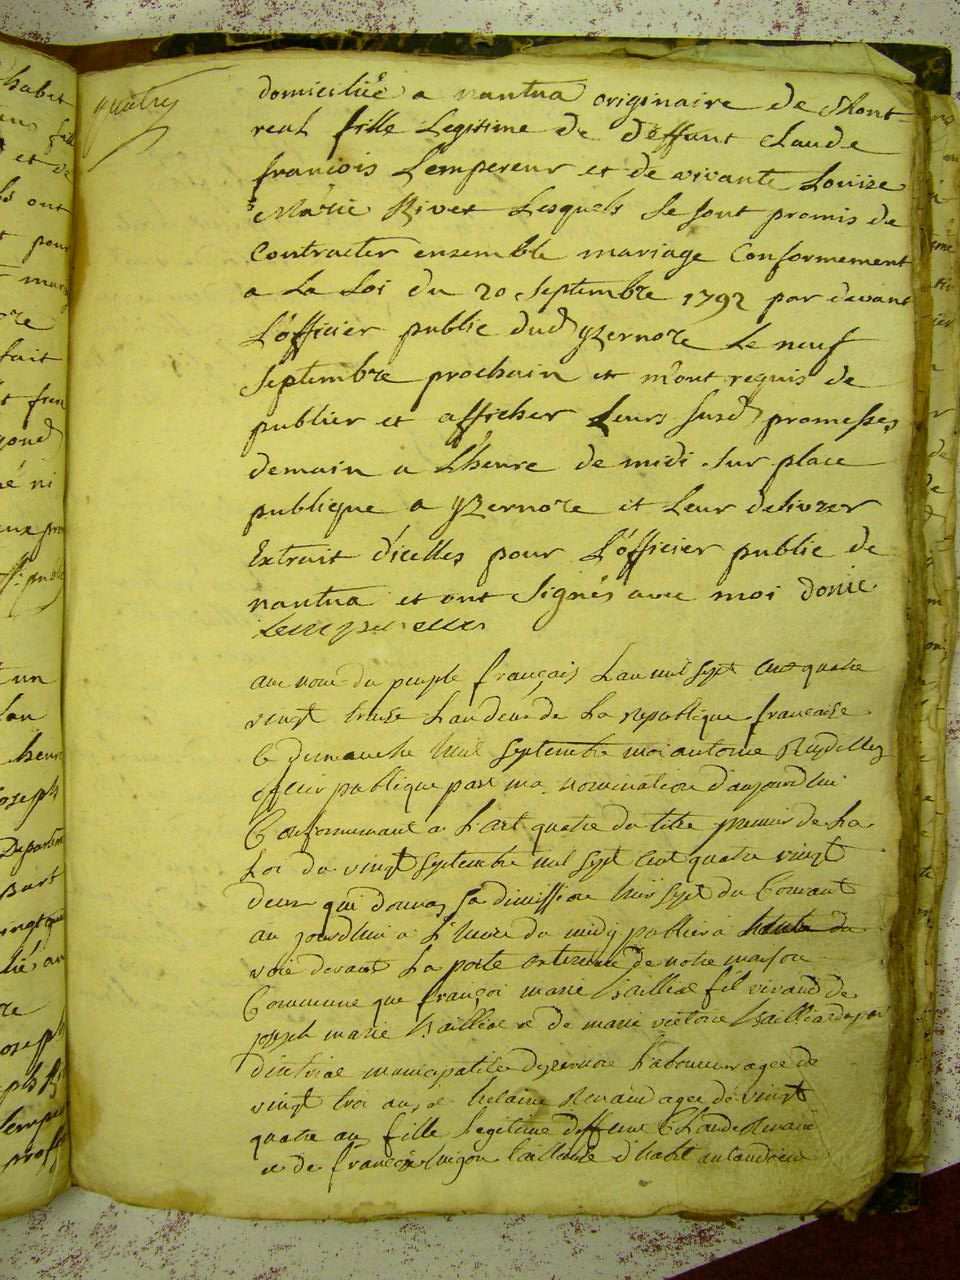 domiciliée a nantua originaire de Mont-
real fille Legitime de deffunt Claude
francois Lempereur et de vivante Louize
Marie Rivet Lesquels se sont promis de
Contracter ensemble mariage Conformement
a La Loi du 20 septembre 1792 par devant
L'officier public dud yzernore Le neuf
septembre prochain et m'ont requis de
publier et afficher Leurs susd promesses
demain a L'heure de midi sur place
publique a yzernore et Leur delivrer
Extrait d'icelles pour L'officier public de
nantua et ont signés avec moi
au nom du peuple français Lan mil sept cent quatre
vingt treize Lan deux de La republique francaise
le dimanche huit septembre moi antoine
officier publique par ma nomination d'aujourdhui
Conformement a L'art quatre du titre premier de La
Loi du vingt septembre mil sept cent quatre vingt
deux qui donna sa dimission hier sept du Courant
aujourdhui a L'heure du midy publier a haute
voie devant La porte exterieure de notre maison
Commune que françoi marie fil vivand de
joseph marie et de marie victoire
municipalité dyzernore Laboureur agee de
vingt troi ans et helaine Renaud agee de vingt
quatre an fille Legitime deffunt Claude Renaud
et de françoise
et de
ont
pour
fait
ni
un
joseph